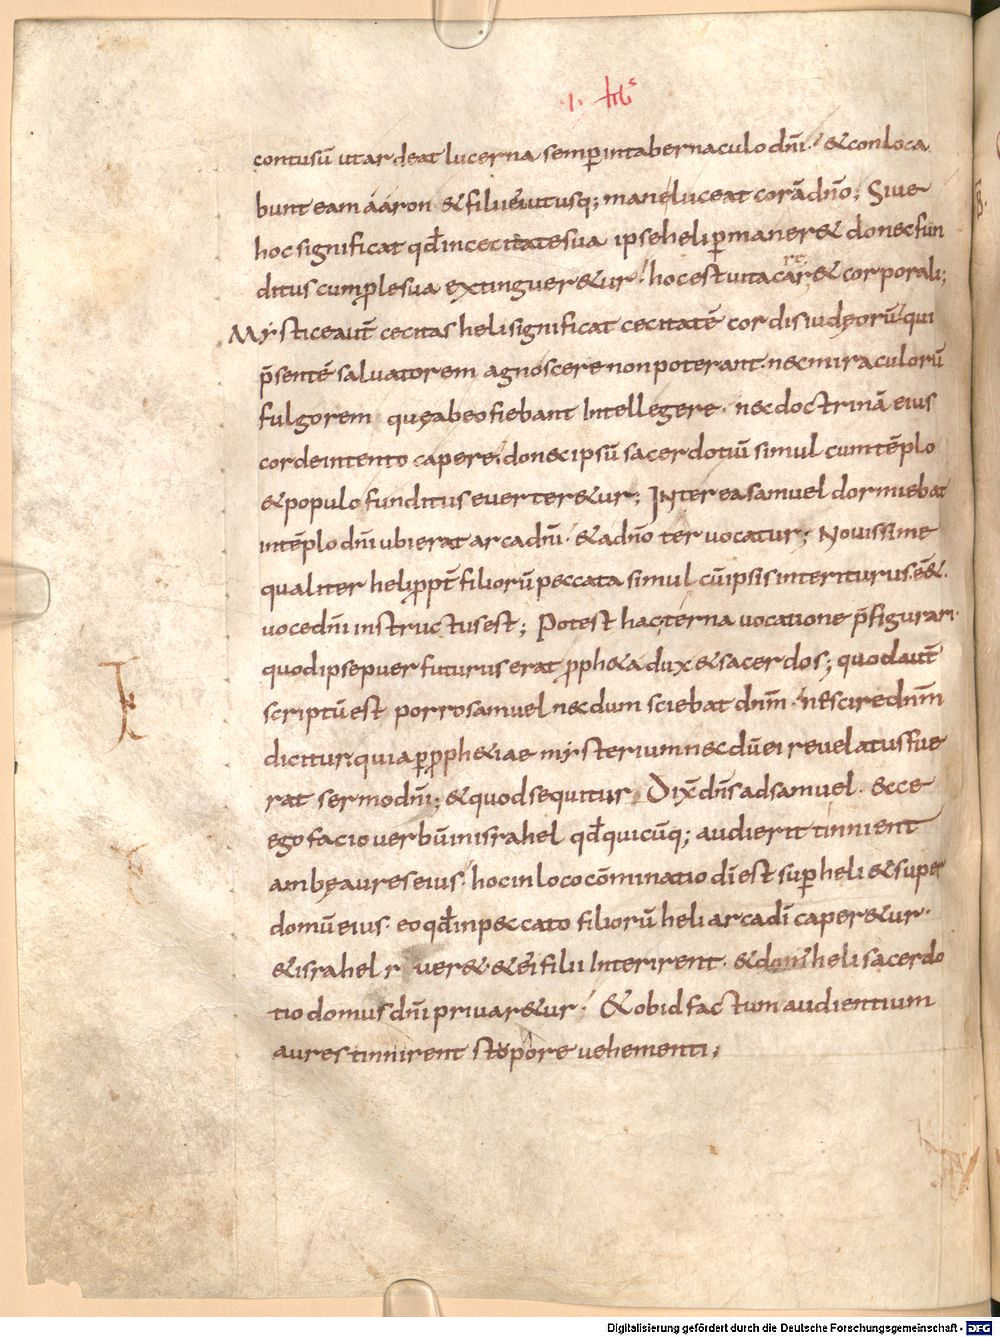 ·I· 
contusū ut ardeat lucerna semp̄ in tabernaculo dn̄i· & conloca
bunt eam aaron & filii eiut usq; mane luceat corā dn̄o; Siue
hoc significat qđ in cecitate sua ipse heli p̄maner& donec fun
ditus cum p̱le sua extinguer&ur· hoc est uita car&rē corporali;
Mystice aut̄ cecitas heli significat cecitatē cordis iudęorū qui
p̄sentē saluatorem agnoscere non poterant· nec miraculorū
fulgorem quę ab eo fiebant Intellegere· nec doctrinā eius
corde intento capere, donec ipsū sacerdotiū simul cum tēplo
& populo funditus euerter&ur; Interea samuel dormiebat
in tēplo dn̄i ubi erat arca dn̄i· & a dn̄o ter vocatur; Nouissime
qualiter heli ꝓpt̄ filiorū peccata simul cū ipsis interiturus· ēē&·
voce dn̄i instructus est; Potest hac terna vocatione p̄figurari·
quod ipse puer futurus erat ꝓph&a dux & sacerdos; quod aut̄
scriptū est porro samuel necdum sciebat dnm̄· nescire dnm̄
dicitur· quia p̱ ꝓph&iae mysterium necdū ei reuelatus fue
rat sermo dn̄i; & quod sequitur Dix̄ dn̄s ad samuel· Ecce
ego facio verbū in israhel qđ quicūq; audierit tinnient
ambę aures eius· hoc in loco cōminatio dī est sup̱ heli & super
domū eius· eo qđ in peccato filiorū heli arca dī caper&ur·
& israhel r uer&· & ei filii Interirent· & domꝰ heli sacerdo
tio domus dn̄i priuar&ur· Et ob id factum audientium
aures tinnirent stopore vehementi;
Digitalisierung gefördert durch die Deutsche Forschungsgemeinschaft - DFG